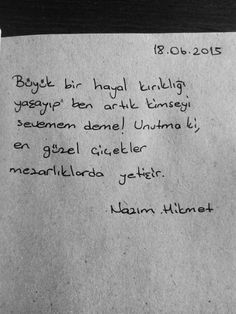 18.06.2015
Büyük bir hayal kırıklığı
yaşayıp ben artık kimseyi
sevemem deme! Unutma ki,
en güzel çiçekler
mezarlıklarda yetişir.
Nazım Hikmet